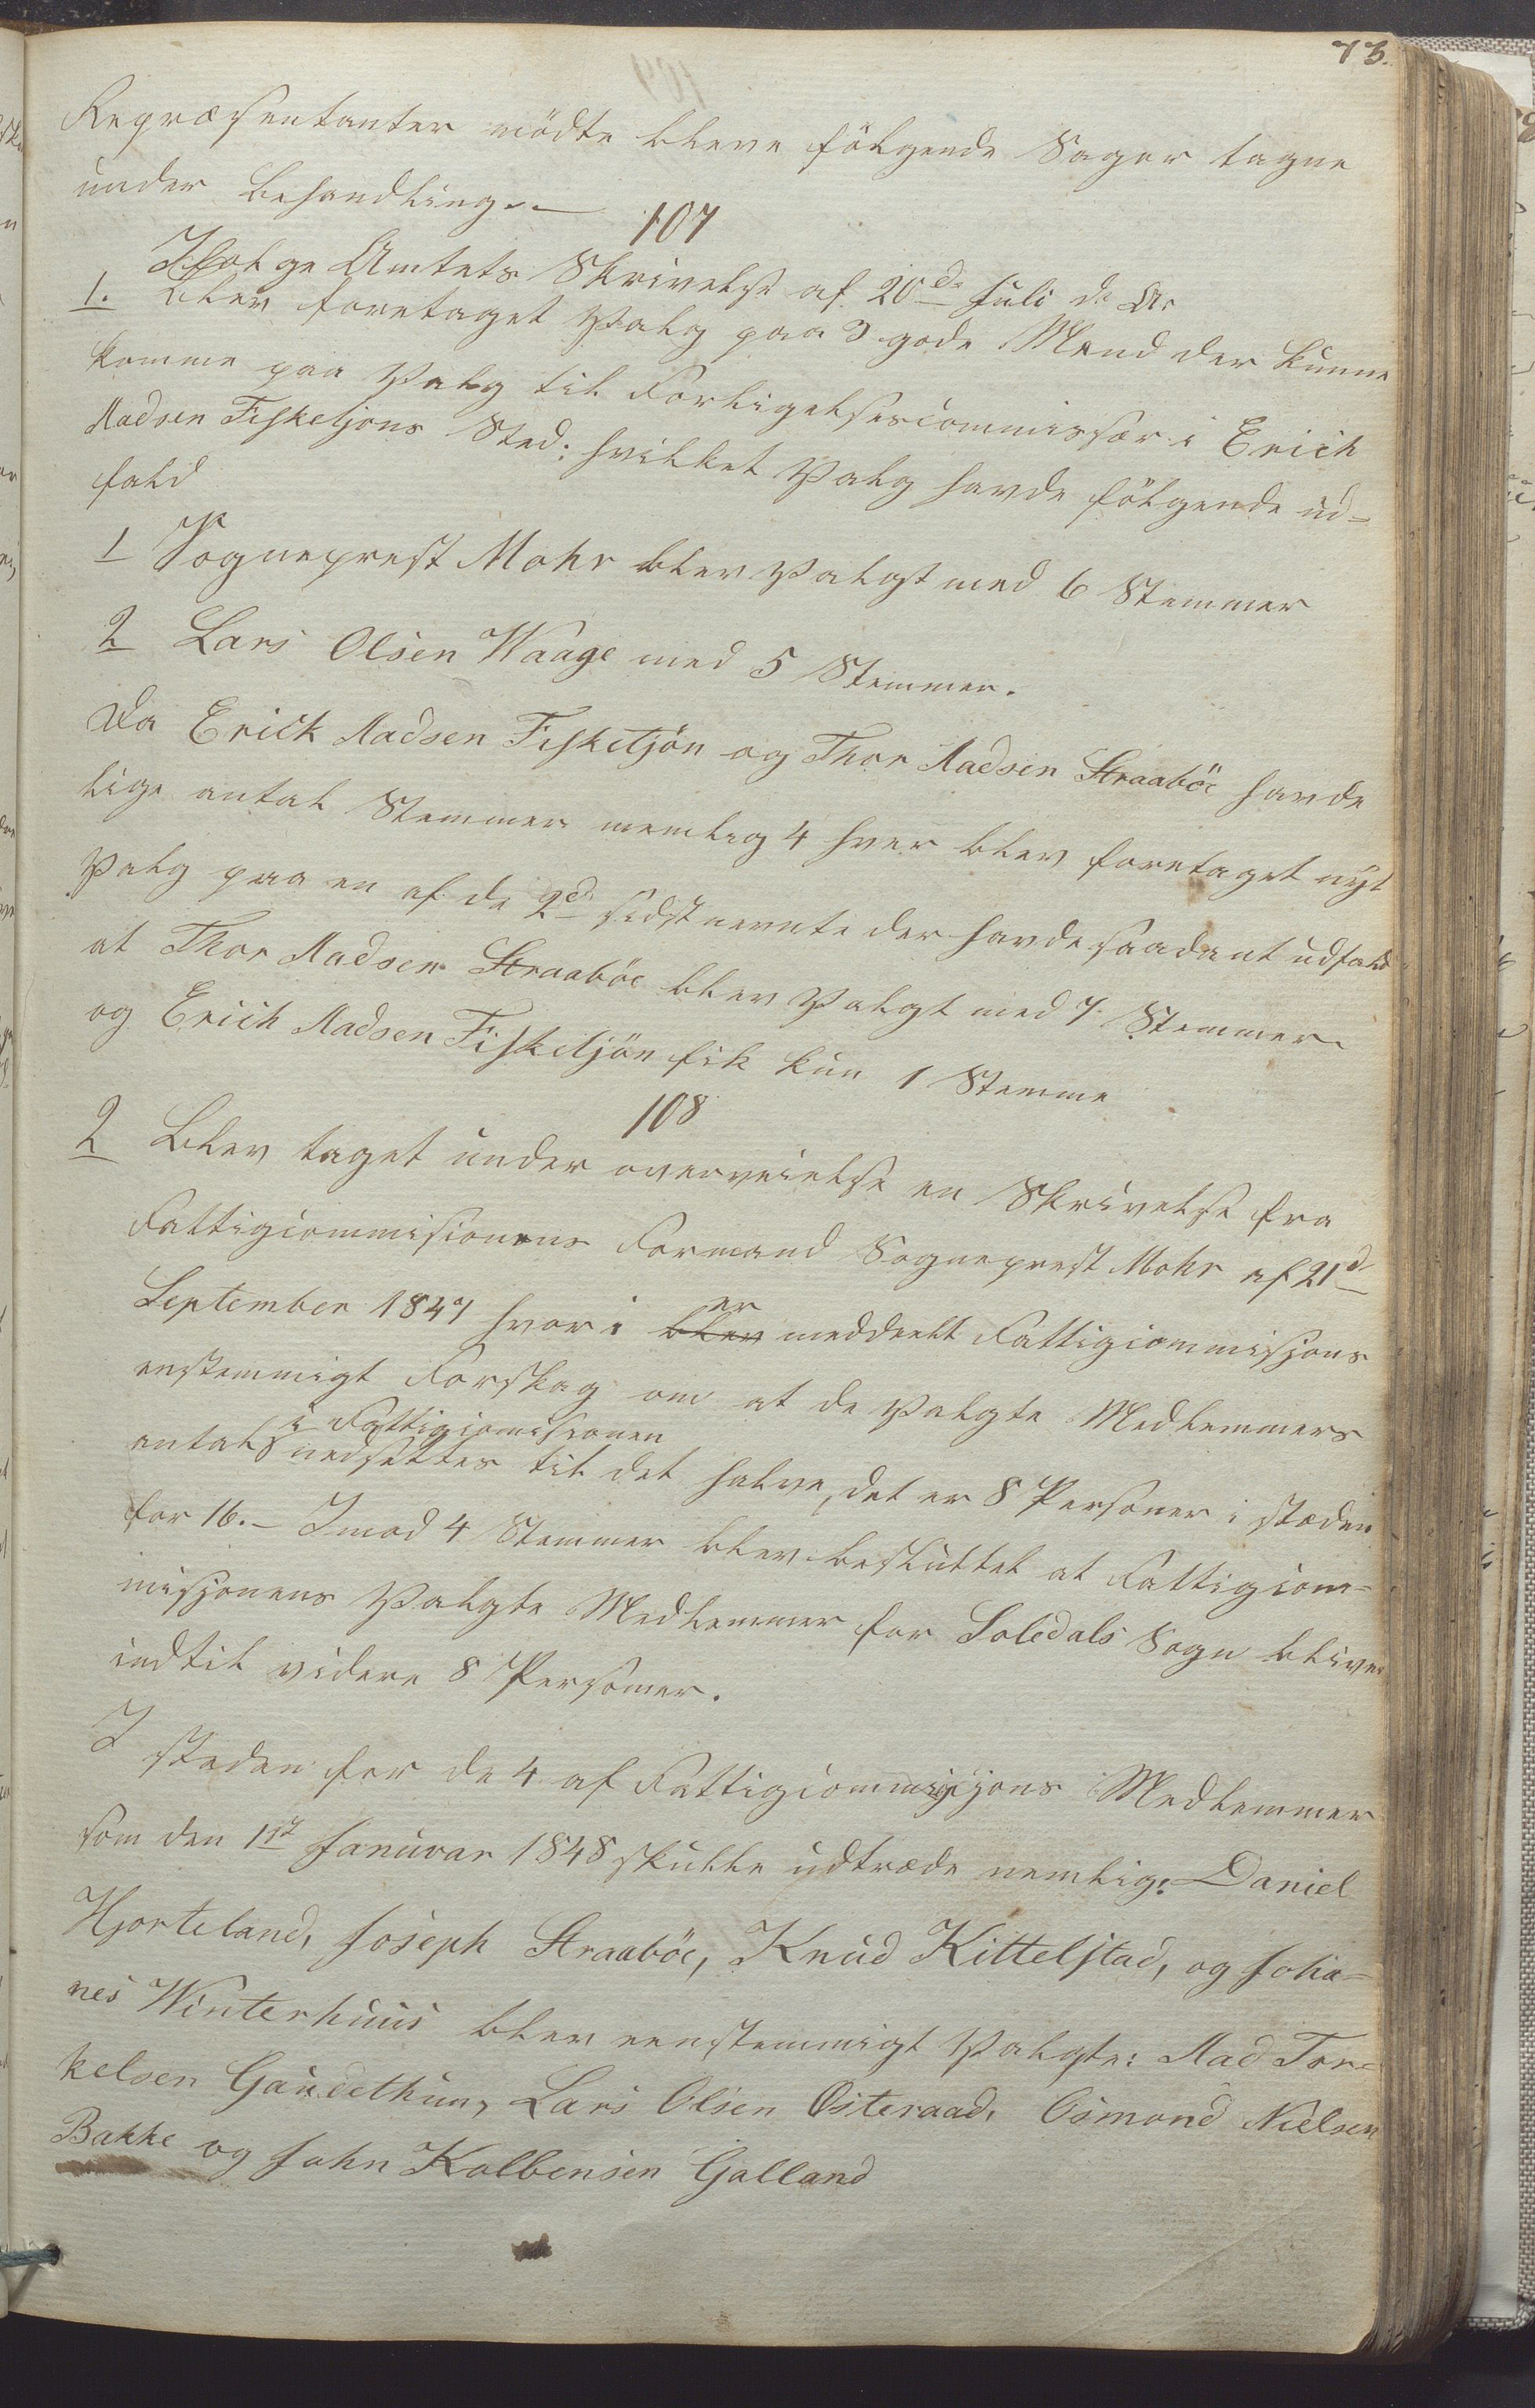 73.
Repræsentanter mödte bleve fölgende Sager tagne
under behandling. —
107
Ifolge Amtets Skrivelse af 20de Juli d. A.
1. blev foretaget Valg paa 3 gode Mænd der kunne
komme paa Valg til Forligelsescommissær i Erich
Madsen Fisketjöns Sted: hvilket Valg havde fölgende ud-
fald
1 Sogneprest Mohr blev Valgt med 6 Stemmer
2 Lars Olsen Waage med 5 Stemmer.
Da Erick Madsen Fisketjön og Thor Madsen Straaböe havde
lige antal Stemmer nemlig 4 hver blev foretaget nyt
Valg paa en af de 2de sidst nevnte der havde saadant udfald
at Thor Madsen Straaböe blev Valgt med 7 Stemmer
og Erich Madsen Fisketjön fik kun 1 Stemme
108
2 Blev taget under overveielse en Skrivelse fra
Fattigcommisionens Formand Sogneprest Mohr af 21d
September 1847 hvori blev er meddeelt Fattigcommissjons
enstemmigt Forslag om at de Valgte Medlemmers
antal i Fattigcomisionen nedsettes til det halve, det er 8 Personer i stæden
for 16. – Imod 4 Stemmer blev besluttet at Fattigcom-
missjonens Valgte Medlemmer for Soledals Sogn bliver
indtil videre 8 Personer.
I steden for de 4 af Fattigcommissjons Medlemmer
som den 1st Januvar 1848 skulle udtræde nemlig: Daniel
Hjorteland, Joseph Straaböe, Knud Kittelstad, og Joha-
nes Winterhuus blev eenstemmigt Valgte: Mad Tor-
kelsen Gaudethun, Lars Olsen Osteraad, Osmond Nielsen
Bakke og John Kolbensen Galland